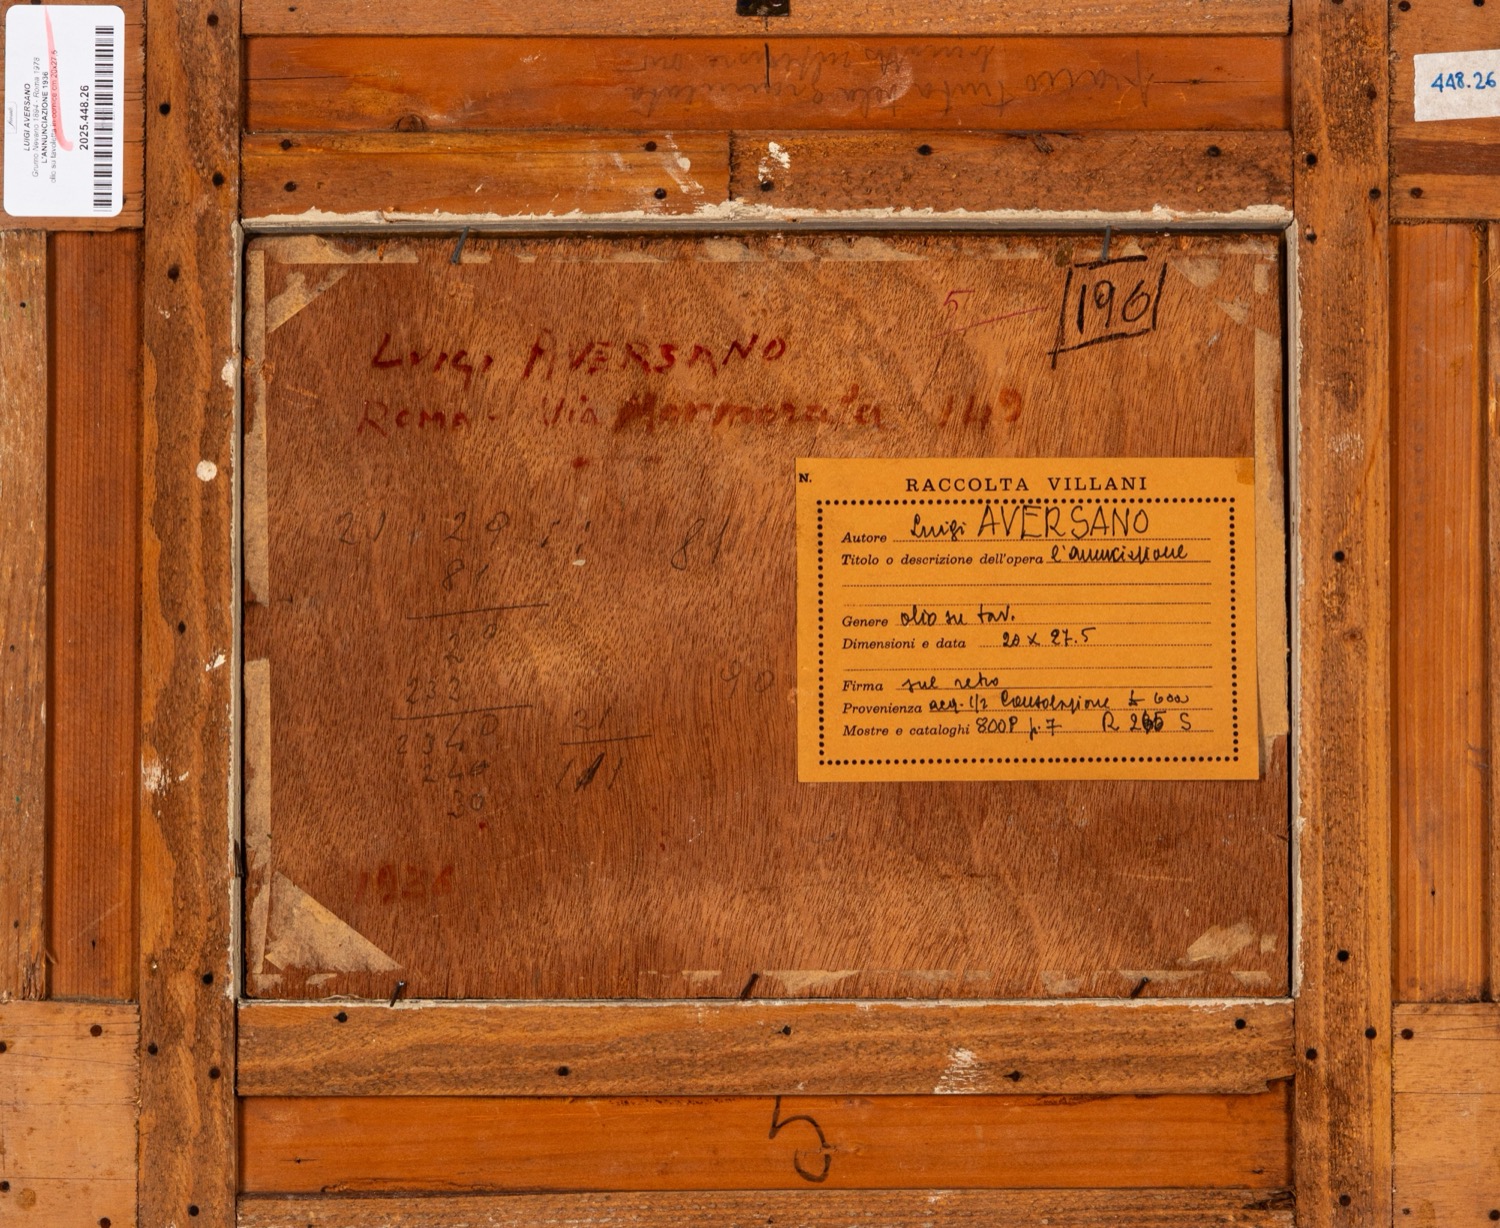 LUIGI AVERSANO
Grumo Nevano 1894 - Roma 1978
L'ANNUNCIAZIONE 1936
olio su tavoletta in cornice cm 20x27,5
2025.448.26
448.26
196
5
LUIGI AVERSANO
ROMA - Via Marmorata 149
21 20 81
81
20
2
232
90
21
234
240
30
N.
RACCOLTA VILLANI
Autore Luigi AVERSANO
Titolo o descrizione dell'opera l'annunciazione
Genere olio su tav.
Dimensioni e data 20 x 27.5
Firma sul retro
Provenienza acq. 1/2 £ 600
Mostre e cataloghi 800P p. 7 R 265 S
1936
5